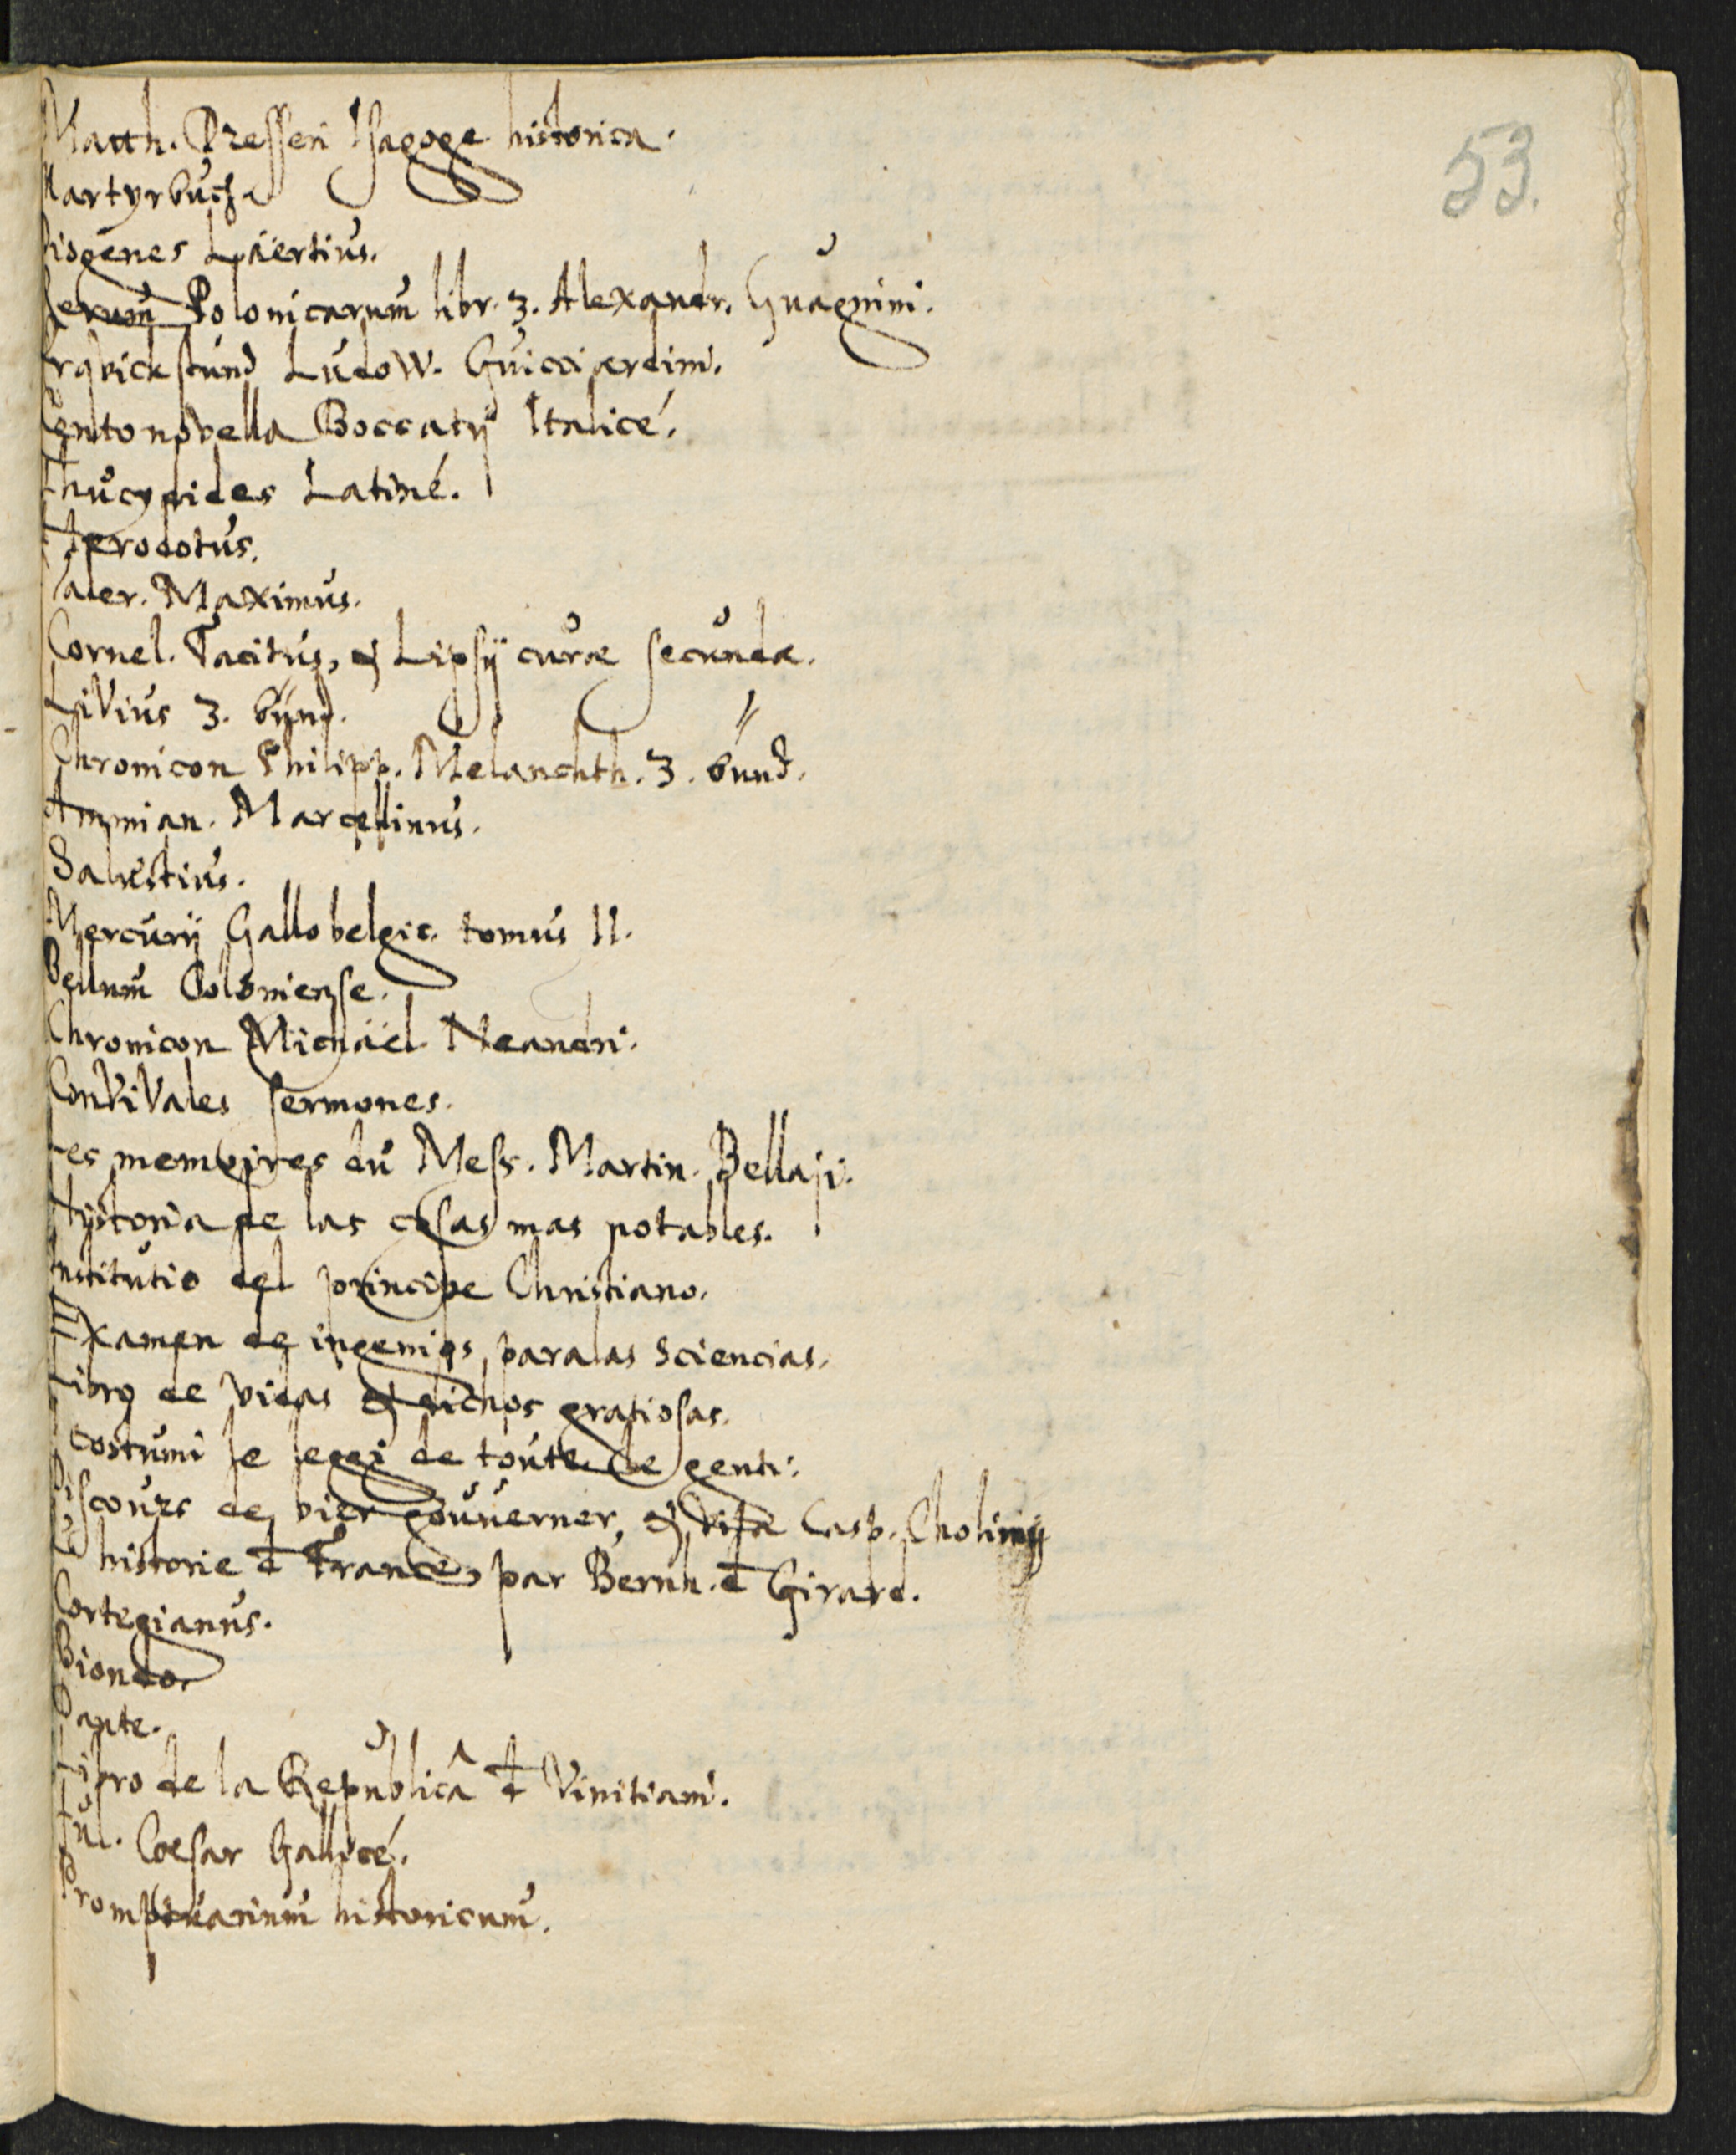 53.
Matth. Dresseri Isagoge historica.
Martyrbuch.
Diogenes Laërtius.
Rerum Polonicarum libr. 3. Alexandr. Guagnini.
Erqvickstund Ludow. Guicciardini.
Cento novella Boccatij Italicé.
Thucydides Latiné.
Herodotus.
Valer. Maximus.
Cornel. Tacitus, et Lipsij curæ secundæ.
Livius 3. bünd.
Chronicon Philipp. Melanchth. 3. bünd.
Ammian. Marcellinus.
Salustius.
Mercurij Gallobelgic. tomus II.
Bellum Coloniense.
Chronicon Michaël Neandri.
Convivales sermones.
Les memoires du Mess. Martin. Bellaji.
Historia de las cosas mas notables.
Institutio del principe Christiano.
Examen de ingenios para las Sciencias.
Libro de vidas et dichos gratiosas.
costumi le leggi de toute le genti.
Discours de bien gouuerner, et vita Casp. Cholinij
historie d France, par Bernh. d Girard.
Cortegianus.
Biondo.
Dante.
Libro de la Republica d Vinitiani.
Jul. Cœsar Gallicé.
Promptuarium historicum.